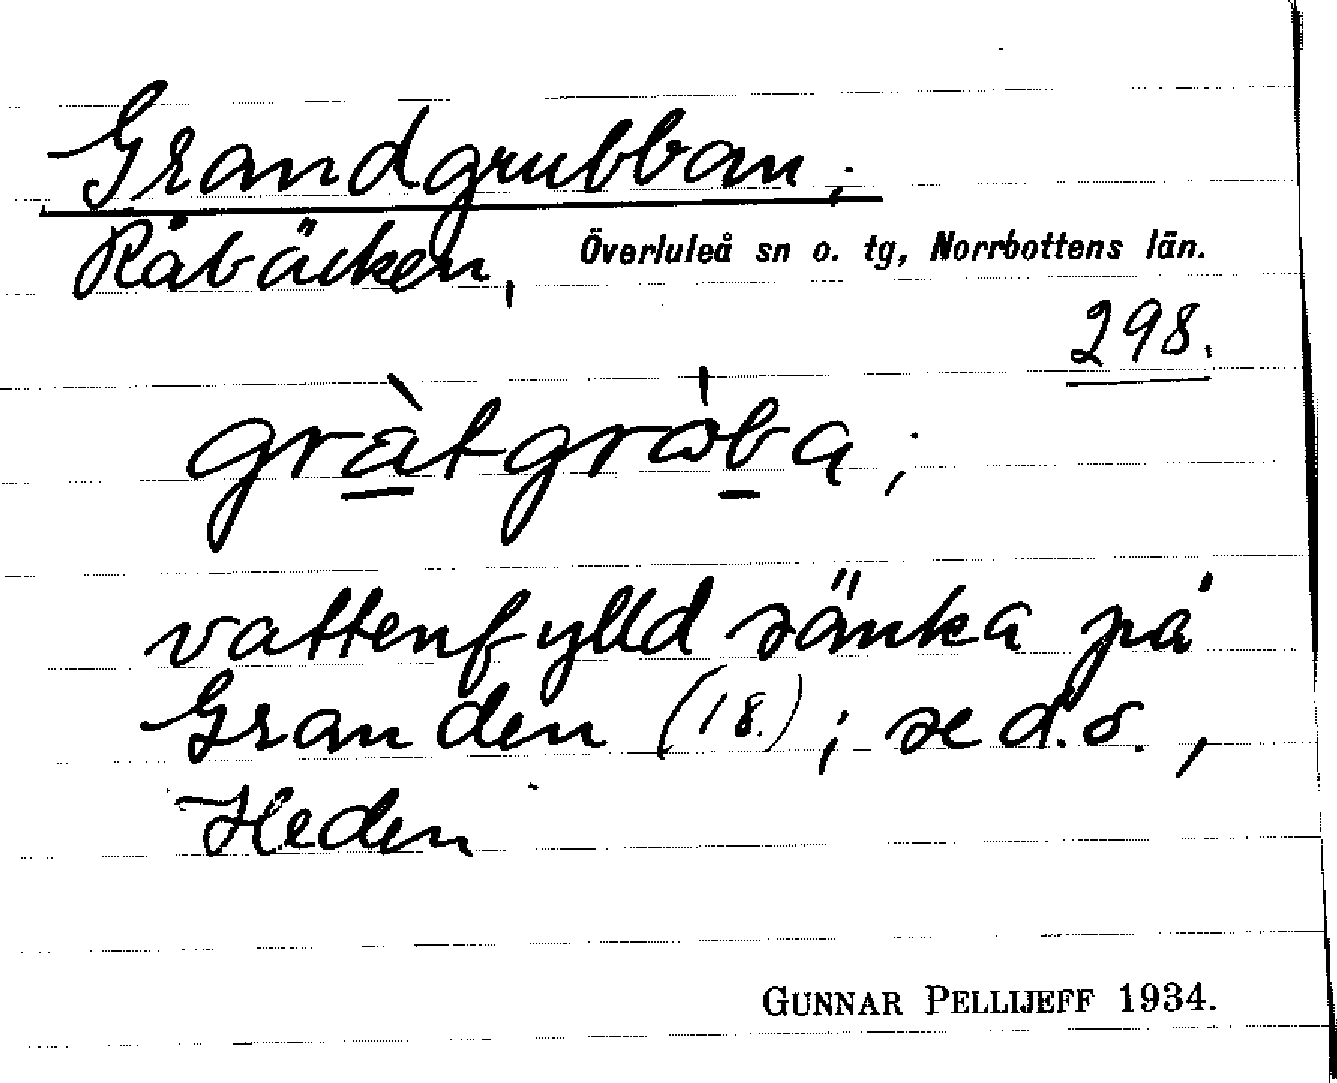 Grandgrubban;
Råbäcken, Överluleå sn o. tg, Norrbottens län.
298.
gràtgròba;
vattenfylld sänka på
Granden (18.); se d.o.,
Heden
GUNNAR PELLIJEFF 1934.